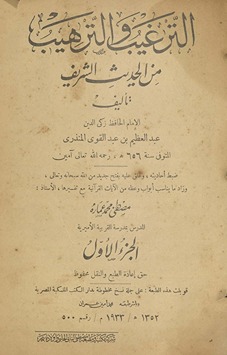 الترغيب والترهيب
من الحديث الشريف
تأليف
الإمام الحافظ زكي الدين
عبد العظيم بن عبد القوى المنذرى
المتوفى سنة ٦٥٦ هـ ، رحمه الله تعالى آمين
ضبط أحاديثه ، وعلق عليه بفتح جديد من الله سبحانه وتعالى ،
وزاد ما يناسب أبوابه وعظه من الآيات القرآنية مع تفسيرها ، الأستاذ :
مصطفى محمد عماره
المدرس بمدرسة القربية الأميرية
الجزء الأول
حق إعادة الطبع والنقل محفوظ
قوبلت هذه الطبعة : على جملة نسخ مخطوطة بدار الكتب الملكية المصرية
١٣٥٢ هـ / ١٩٣٣ م / رقم ٥٠٠